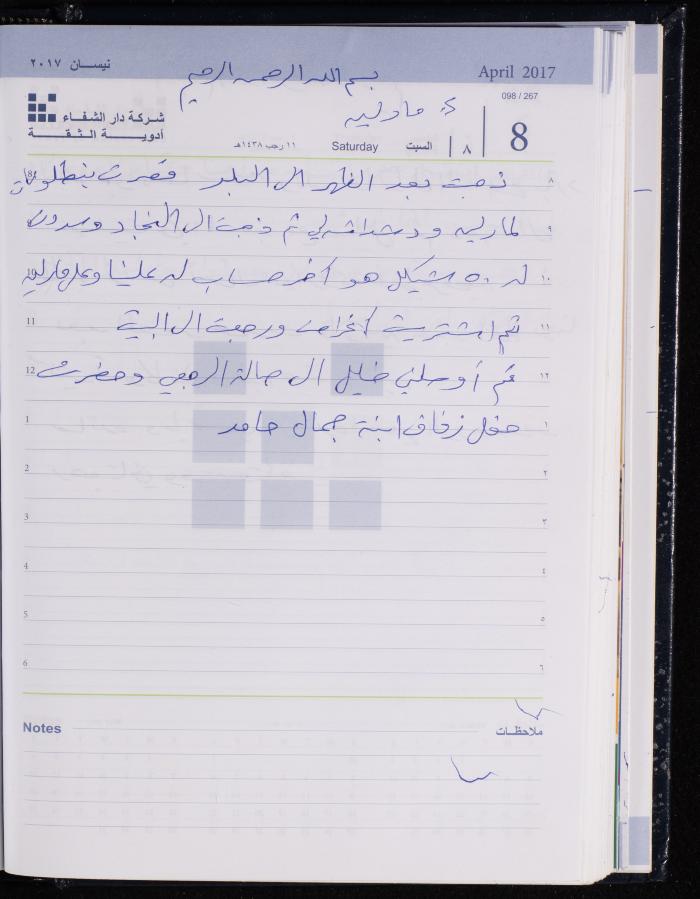 نيسان ٢٠١٧
April 2017
بسم الله الرحمن الرحيم
098 / 267
شركة دار الشفاء
أدويـة الثقـة
١١ رجب ١٤٣٨هـ
Saturday
السبت
٨
8
٨ ذهبت بعد الظهر الى البلد 8
٩ ثم ذهبت الى النجاد
١٠ له ٥٠ شيكل هو آخر حساب له علينا
١١ ثم اشتريت أغراض ورجعت الى البيت 11
١٢ ثم أوصلني خليل الى صالة وحضرت 12
١ حفل زفاف ابنة جمال حامد 1
٢ 2
٣ 3
٤ 4
٥ 5
٦ 6
Notes
ملاحظـات